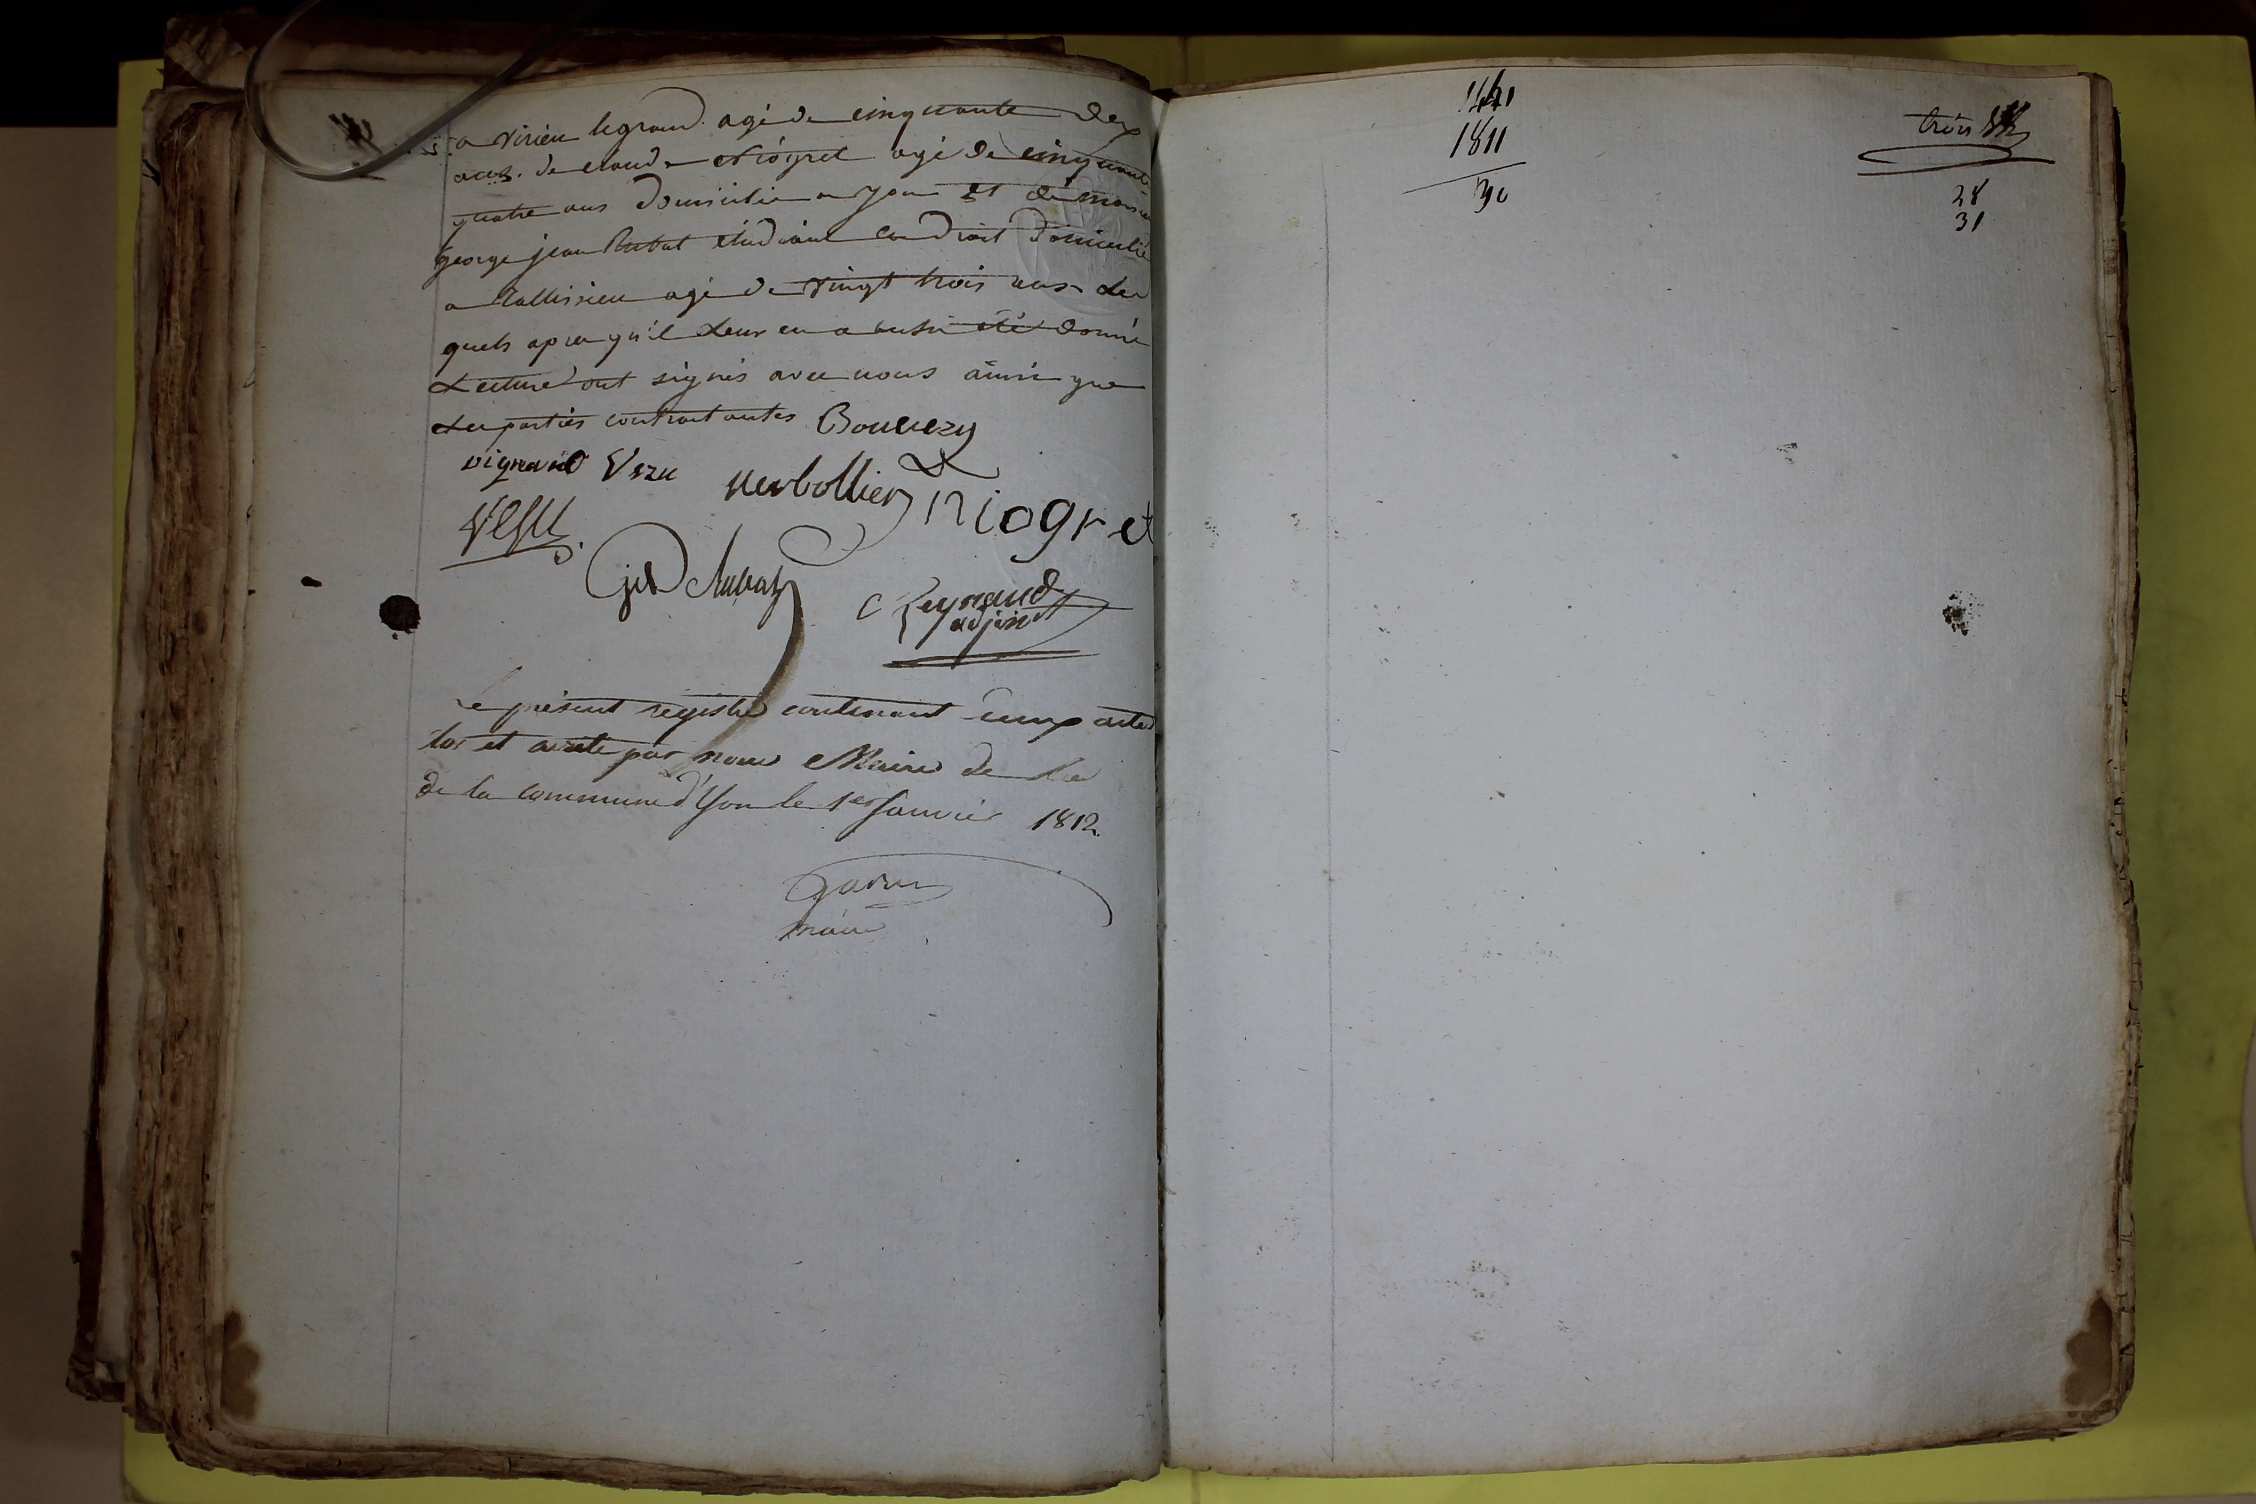 a virieu legrand. agé de cinquante deux
ans. de claude Niogret agé de cinquante
quatre ans domicilié a yon Et de monsieur
george jean Rubat étudiant en droit domicilié
a Tallissieu agé de vingt trois ans Les
quels apres qu'il Leur en a aussi été donné
Lecture ont signés avec nous ainsi que
Les parties contractantes Bouvezy
vignand Vezu Merbollier Niogret
Vezu
gj Rubat C Reynaud
adjoint
Le présent régistre contenant cinq actes
clos et areté par nous Maire de La
de la commune d'Yon le 1er Janvier 1812.
maire
1811
30
trois
28
31